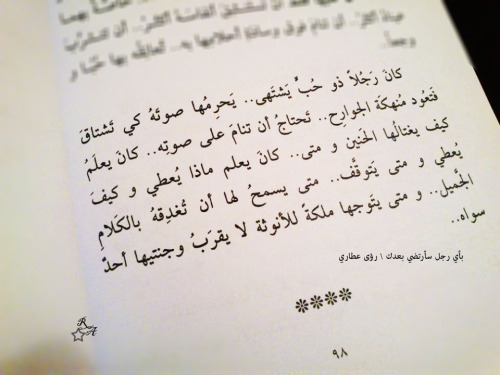 كانَ رَجُلاً ذو حُبٍّ يَشْتَهى.. يَحرِمُها صوتَهُ كي تَشْتاقَ
فَتَعُود مُنهَكةَ الجَوارِح.. تَحتاجُ أن تنامَ على صوتِه.. كانَ يعلَمُ
كيف يغتالُها الحَنين و متى.. كانَ يعلم ماذا يُعطي و كيفَ
يُعطي و متى يَتوقَّف.. متى يسمحُ لها أن تُغدِقهُ بالكَلامِ
الجَميل.. و متى يتوجها ملكةً للأنوثة لا يقرَبُ وجنتيها أحدٌ
سواه..
بأي رجل سأرتضي بعدك \ رؤى عطاري
****
R
A
٩٨